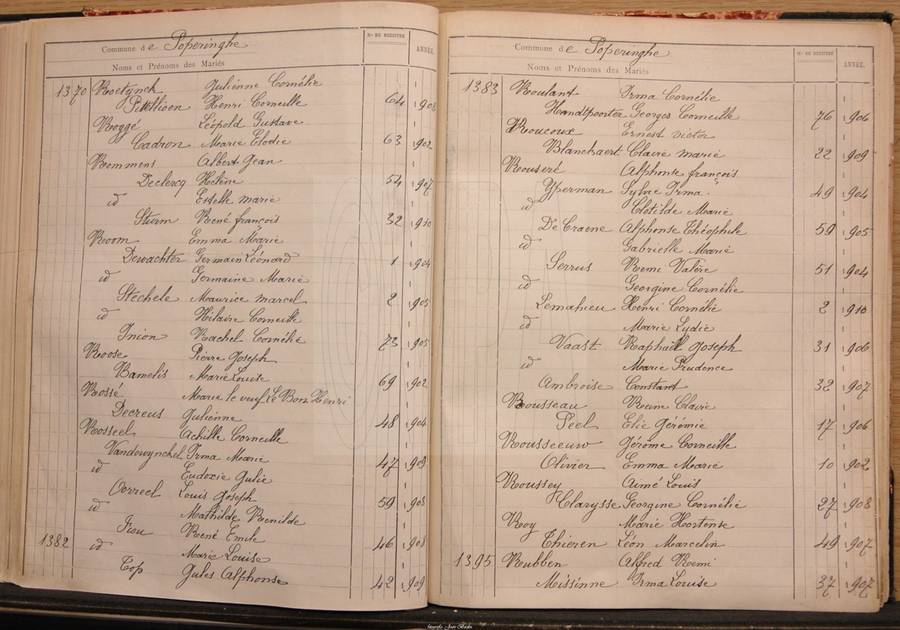 Commune de Poperinghe
Nos DU REGISTRE
ANNÉE.
Noms et Prénoms des Mariés
1370 Roelynck Julienne Cornélie
Pitellioen Henri Corneille 64 1908
Roggé Léopold Gustave
Cadron Marie Elodie 63 1902
Rommens Albert Jean
Declercq Hélène 54 1907
id Estelle Marie
Sturm René françois 32 1910
Room Emma Marie
Dewachter Germain Léonard 1 1904
id Germaine Marie
Stechele Maurice Marcel 2 1905
id Hilaire Corneille
Inion Rachel Cornélie 73 1905
Roose Pierre Joseph
Bamelis Marie Louise 69 1902
Rossé Marie le veuf Le Bon Henri
Decreus Julienne 48 1904
Rosseel Achille Corneille
Vandewynckel Irma Marie 47 1909
id Eudoxie Julie
Overeel Louis Joseph 59 1908
id Mathilde Renilde
Fiou René Emile 46 1908
1382 id Marie Louise
Top Jules Alphonse 42 1909
Commune de Poperinghe
Nos DU REGISTRE
ANNÉE.
Noms et Prénoms des Mariés
1383 Roulant Irma Cornélie
Handtpoorter Georges Corneille 76 1906
Roucoux Ernest Victor
Blanckaert Claire Marie 22 1909
Rouseré Alphonse françois
Yperman Sylvie Irma 49 1904
id Clotilde Marie
De Craene Alphonse Théophile 59 1905
id Gabrielle Marie
Serrus Remi Valère 51 1904
id Georgine Cornélie
Lemahieu Henri Cornélie 2 1910
id Marie Lydie
Vaast Raphaël Joseph 31 1906
id Marie Prudence
Ambroise Constant 32 1907
Rousseau Reine Claire
Peel Elie Jérémie 17 1906
Rousseeuw Jérôme Corneille
Olivier Emma Marie 10 1902
Roussey Aimé Louis
Clarysse Georgine Cornélie 27 1908
Roy Marie Hortense
Thieren Léon Marcelin 49 1907
1395 Rubben Alfred Remi
Missinne Irma Louise 37 1907